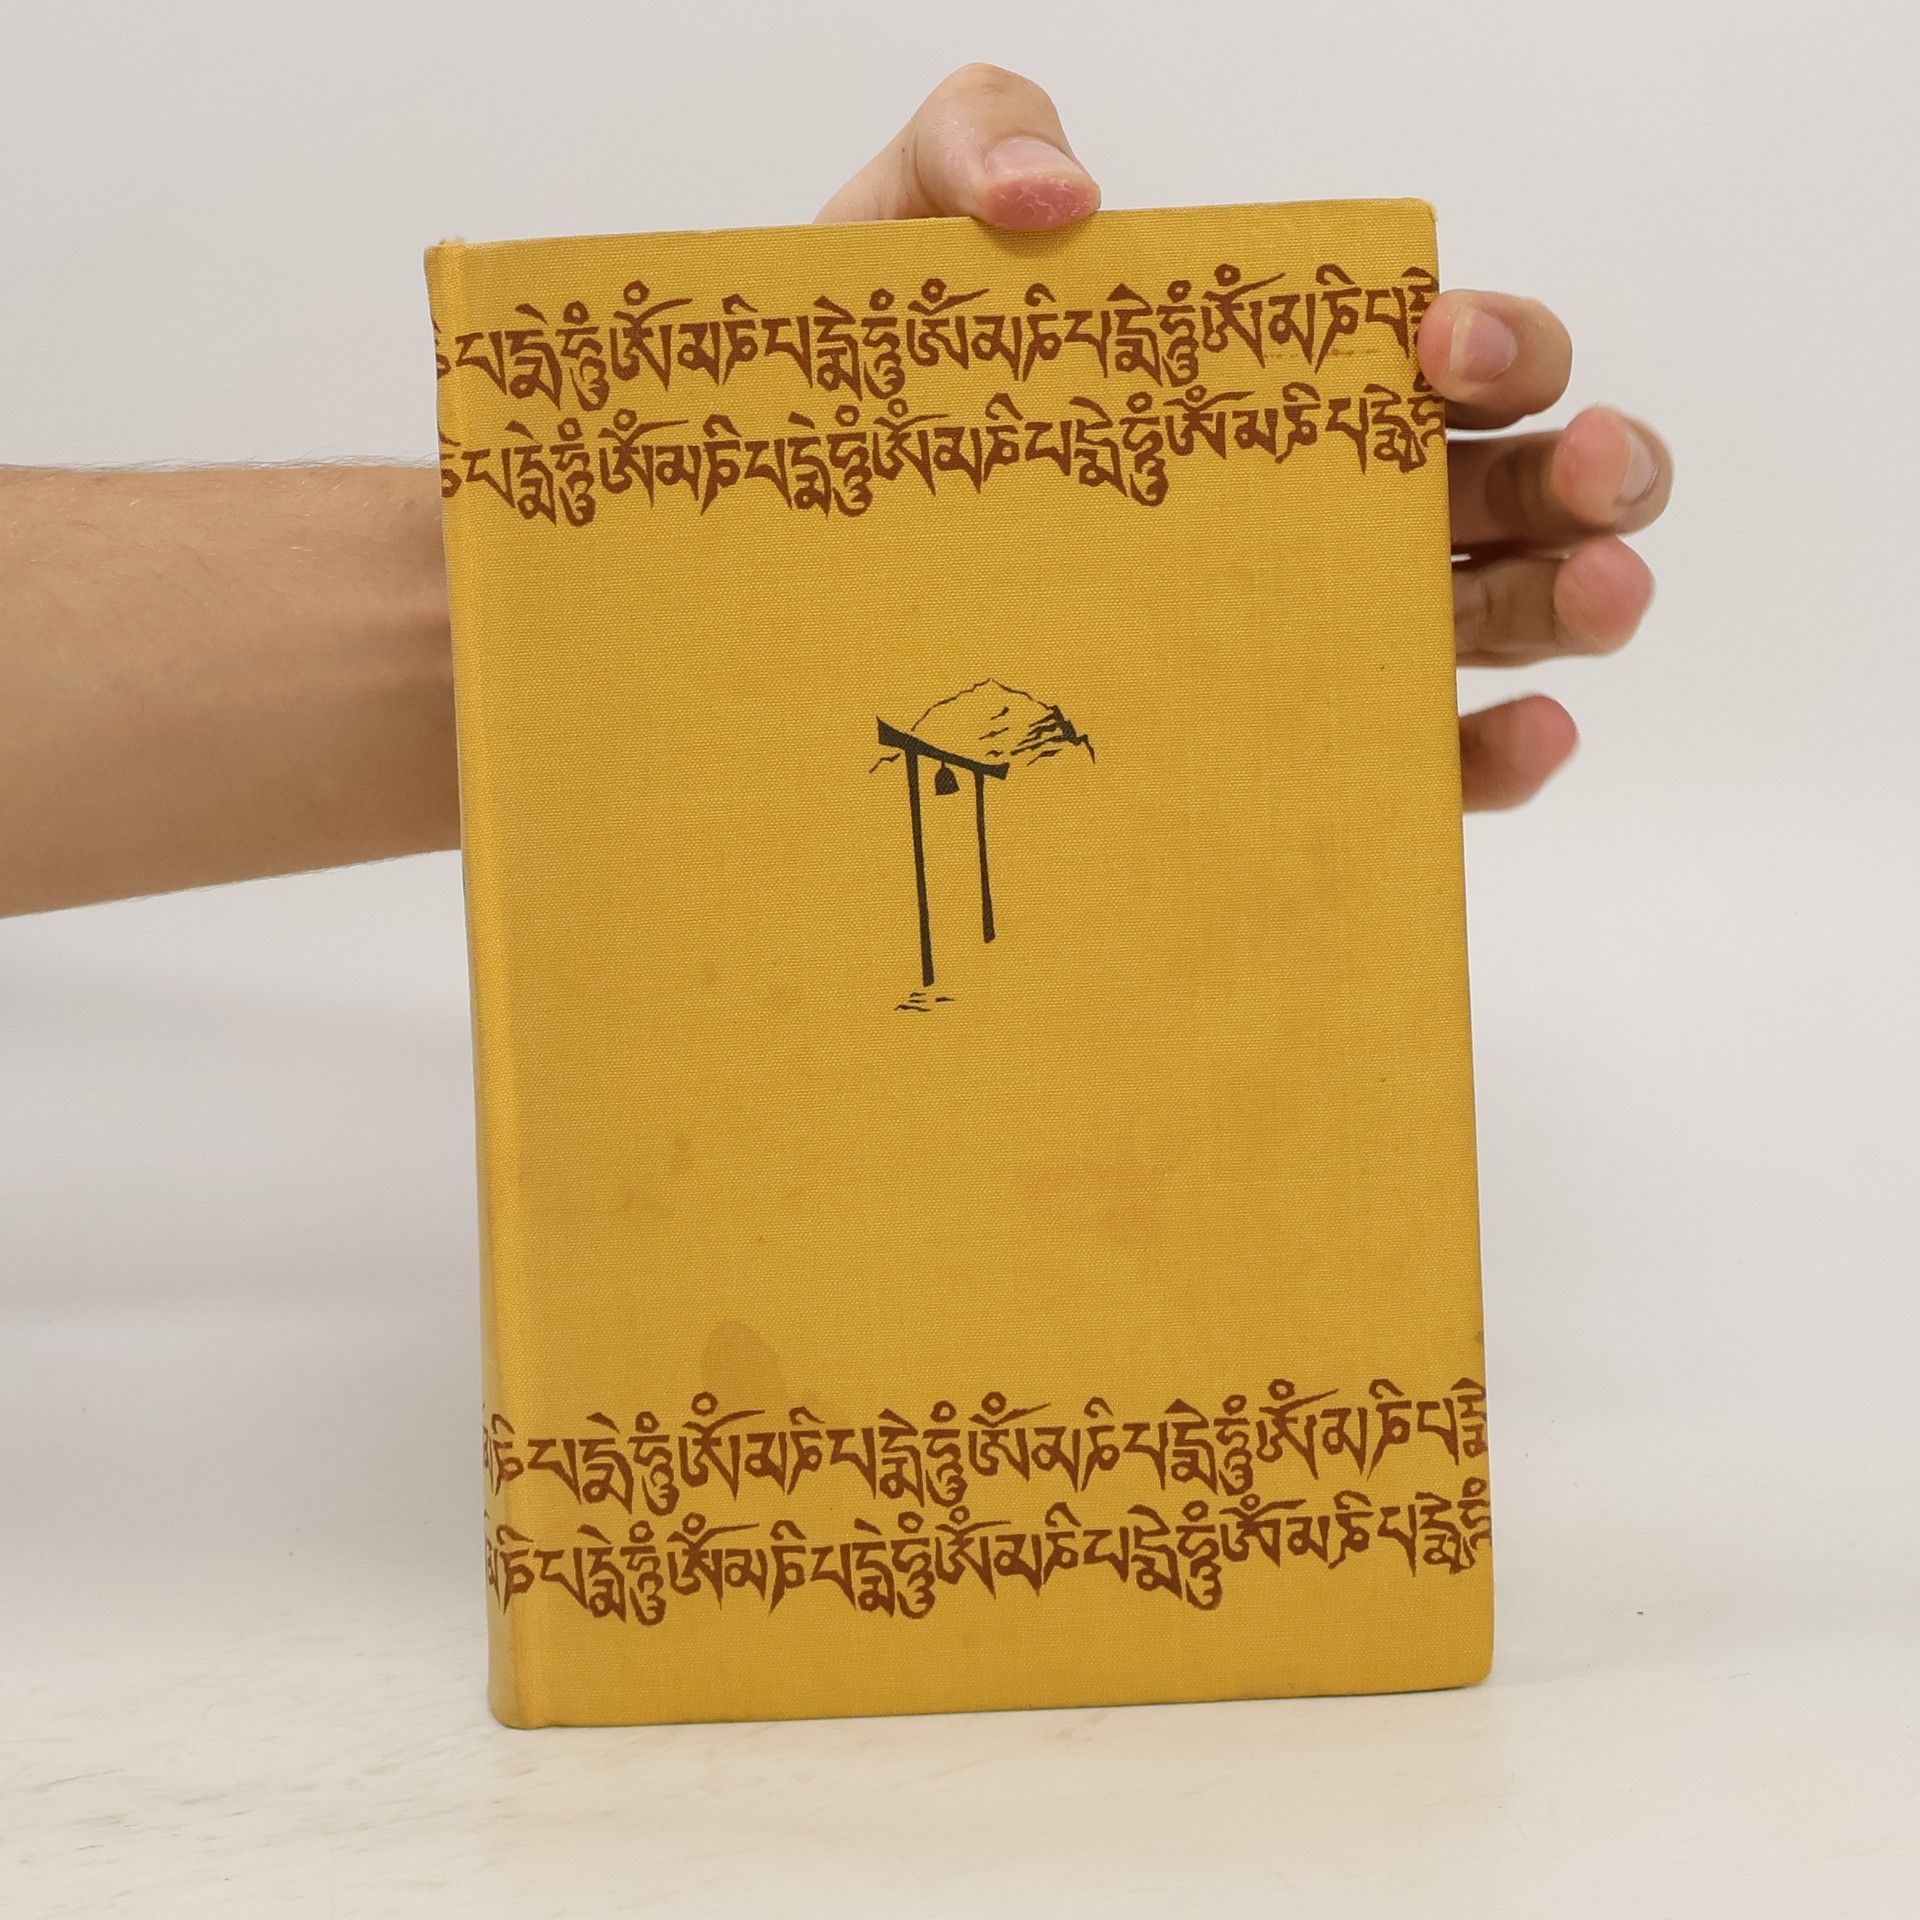 པདྨེཧཱུྃཨོཾམཎིཔདྨེཧཱུྃཨོཾམཎིཔདྨེཧཱུྃཨོཾམཎིཔདྨེ
པདྨེཧཱུྃཨོཾམཎིཔདྨེཧཱུྃཨོཾམཎིཔདྨེཧཱུྃཨོཾམཎིཔདྨེཧཱུྃ
མཎིཔདྨེཧཱུྃཨོཾམཎིཔདྨེཧཱུྃཨོཾམཎིཔདྨེཧཱུྃཨོཾམཎིཔདྨེ
མཎིཔདྨེཧཱུྃཨོཾམཎིཔདྨེཧཱུྃཨོཾམཎིཔདྨེཧཱུྃཨོཾམཎིཔདྨེཧཱུྃ